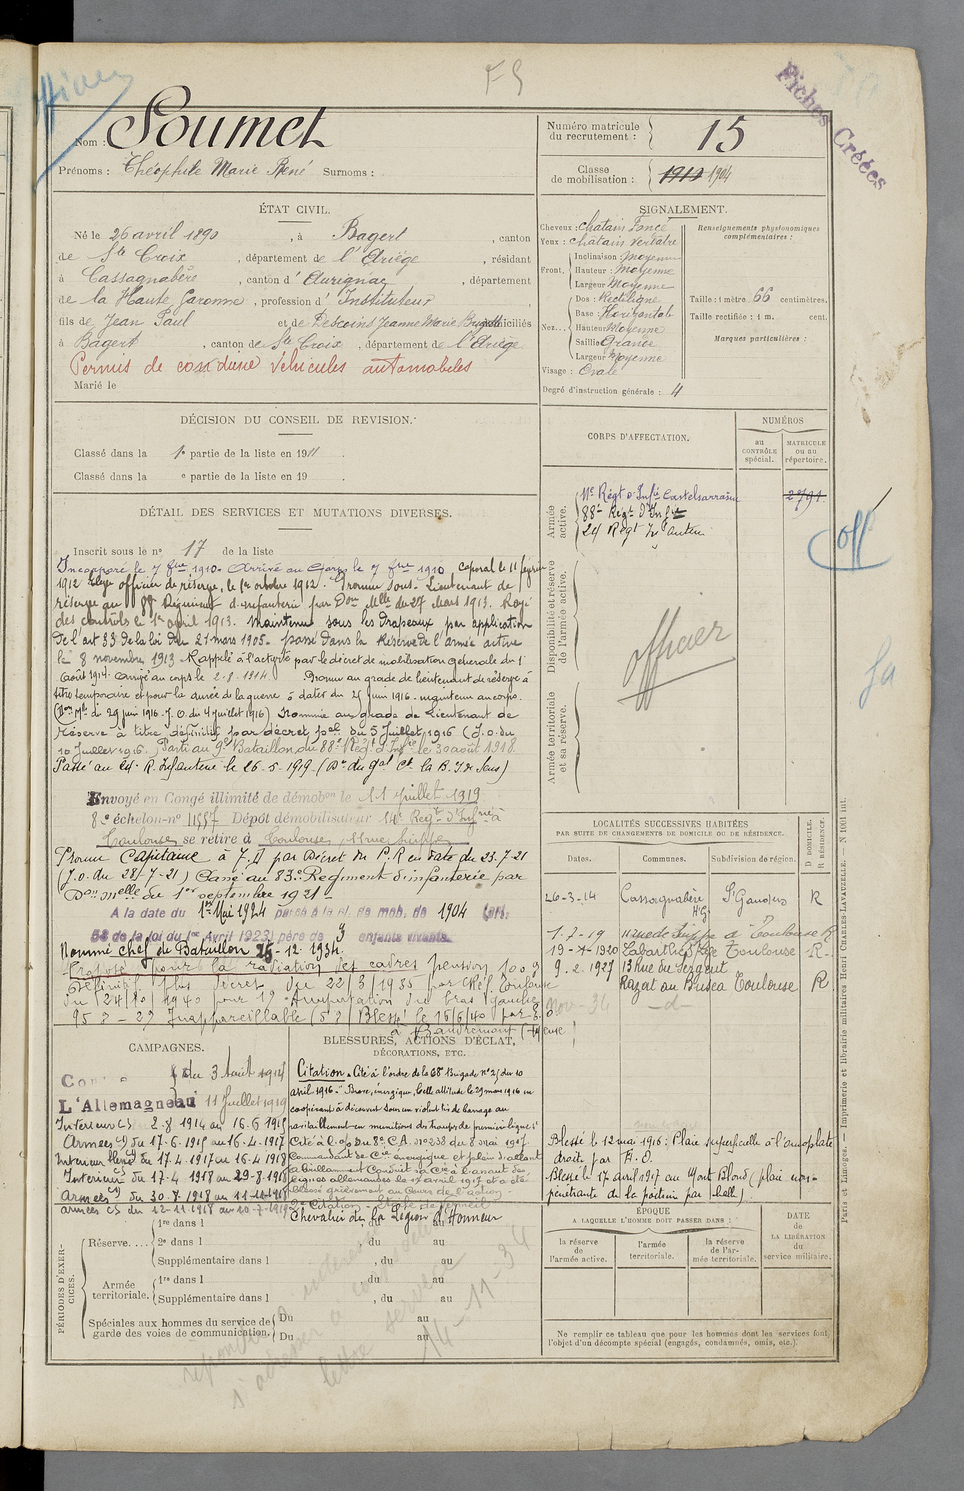 officier
F 9
Fiches Créées
Nom : Soumet
Prénoms : Théophile Marie René Surnoms :
Numéro matricule du recrutement : 15
Classe de mobilisation : 1910 1904
ÉTAT CIVIL.
Né le 26 avril 1890, à Bagert, canton
de Ste Croix, département de l'Ariège, résidant
à Cassagnabère, canton d'Aurignac, département
de la Haute Garonne, profession d'Instituteur
fils de Jean Paul et de Descoins Jeanne Marie domiciliés
à Bagert, canton de Ste Croix, département de l'Ariège
Permis de conduire véhicules automobiles
Marié le
SIGNALEMENT.
Cheveux : chatain foncé
Yeux : chatain verdâtre
Front, Inclinaison : moyenne
Hauteur : moyenne
Largeur : Moyenne
Nez... Dos : Rectiligne
Base : Horizontale
Hauteur Moyenne
Saillie Grande
Largeur Moyenne
Visage : Ovale
Degré d'instruction générale : 4
Renseignements physionomiques complémentaires :
Taille : 1 mètre 66 centimètres.
Taille rectifiée : 1 m. cent.
Marques particulières :
DÉCISION DU CONSEIL DE REVISION.
Classé dans la 1e partie de la liste en 1911.
Classé dans la e partie de la liste en 19 .
DÉTAIL DES SERVICES ET MUTATIONS DIVERSES.
Inscrit sous le no 17 de la liste
Incorporé le 7 8bre 1910. Arrivé au Corps le 7 8bre 1910, caporal le 11 février
1912. Elève officier de réserve, le 1er octobre 1912. Promu sous-Lieutenant de
réserve au 88e Régiment d'infanterie par Don Mlle du 27 Mars 1913. Rayé
des contrôles le 1er avril 1913. Maintenu sous les drapeaux par application
de l'art 33 de la loi du 21 mars 1905. passé dans la Réserve de l'armée active
le 8 novembre 1913. Rappelé à l'activité par le décret de mobilisation générale du 1er
août 1914. arrivé au corps le 2-8-1914. Promu au grade de lieutenant de réserve à
titre temporaire et pour la durée de la guerre à dater du 25 juin 1916. maintenu au corps.
(Don Mle du 29 juin 1916. J.O. du 4 juillet 1916) Nommé au grade de Lieutenant de
Réserve à titre définitif par décret du 5 Juillet 1916 (J.O. du
10 Juillet 1916. Parti au 9e Bataillon du 88e Régt d'Infie le 30 août 1918.
Passé au 24e R. Infanterie le 26-5-1919 (Dn du Gal Ct la B.I de Sens)
Envoyé en Congé illimité de démobon le 11 juillet 1919
8e échelon-no Dépôt démobilisateur 14e Régt d'Infrie à
Toulouse se retire à Toulouse, 11 rue
Promu Capitaine à T.D par Décret du P.R en date du 23.7.21
(J.O. du 28/7-21) Classé au 83e Régiment d'infanterie par
Don melle du 1er septembre 1921
A la date du 1er Mai 1924 passé à la cl. de mob. de 1904 (art.
58 de la loi du 1er Avril 1923) père de 3 enfants vivants.
Nommé chef de Bataillon 25-12-1934.
Proposé pour la radiation des cadres pension 100 %
95 % - 2° Inappareillable (5 %) Blessé le 15/6/40
CORPS D'AFFECTATION.
NUMÉROS
au CONTRÔLE spécial.
MATRICULE ou au répertoire.
Armée active.
11e Régt d'Infie Castelsarrasin 2791
88e Régt d'Infie
24 Régt d'Infanterie
Disponibilité et réserve de l'armée active.
officier
Armée territoriale et sa réserve.
off
LOCALITÉS SUCCESSIVES HABITÉES
PAR SUITE DE CHANGEMENTS DE DOMICILE OU DE RÉSIDENCE.
Dates. Communes. Subdivision de région. D DOMICILE. R RÉSIDENCE.
26-3-14 Cassagnabère Hte G. St Gaudens R
1.7-19 11 rue de d° Toulouse R
19-4-1920 Labarthe Toulouse R.
9.2.1927 13 Rue du Sergent
Razat au Busca Toulouse R
Nov. 34 -d-
CAMPAGNES.
Contre L'Allemagne du 3 Août 1914
au 11 juillet 1919
Intérieur CS 2-8 1914 au 16-6 1915
Armées CS du 17-6-1915 au 16-4-1917
Intérieur blessé du 17.4.1917 au 16-4 1918
Intérieur CS du 17-4-1918 au 29-8-1918
Armées CS du 30-8-1918 au 11-11-1918
armées CS du 12-11-1918 au 10-7-1919
BLESSURES, ACTIONS D'ÉCLAT,
DÉCORATIONS, ETC.
Citation - Cité à l'ordre de la 68e Brigade no 25 du 10
avril 1916. "Brave, énergique, belle attitude le 29 mars 1916 en
coopérant à découvert sous un violent tir de barrage au
ravitaillement en munitions des troupes de première ligne."
Cité à l'o/o du 8e C.A. no 238 du 8 mai 1917.
Commandant de Cie énergique et plein d'allant
a brillamment conduit sa Cie à l'assaut des
lignes allemandes le 17 avril 1917 et a été
blessé grièvement au cours de l'action.
Chevalier de la Légion d'Honneur
Blessé le 12 mai 1916 : Plaie superficielle à l'omoplate
droite par É. O.
Blessé le 17 avril 1917 au Mont Blond (plaie non-
pénétrante de la poitrine par balle)
PÉRIODES D'EXERCICES.
Réserve.... 1re dans l , du au
2e dans l , du au
Supplémentaire dans l , du au
Armée territoriale. 1re dans l , du au
Supplémentaire dans l , du au
Spéciales aux hommes du service de garde des voies de communication. Du au
Du au
14-11-34
ÉPOQUE
A LAQUELLE L'HOMME DOIT PASSER DANS :
la réserve de l'armée active.
l'armée territoriale.
la réserve de l'armée territoriale.
DATE de LA LIBÉRATION du service militaire.
Ne remplir ce tableau que pour les hommes dont les services font
l'objet d'un décompte spécial (engagés, condamnés, omis, etc.).
Paris et Limoges. — Imprimerie et librairie militaires Henri CHARLES-LAVAUZELLE. — N 1001 int.